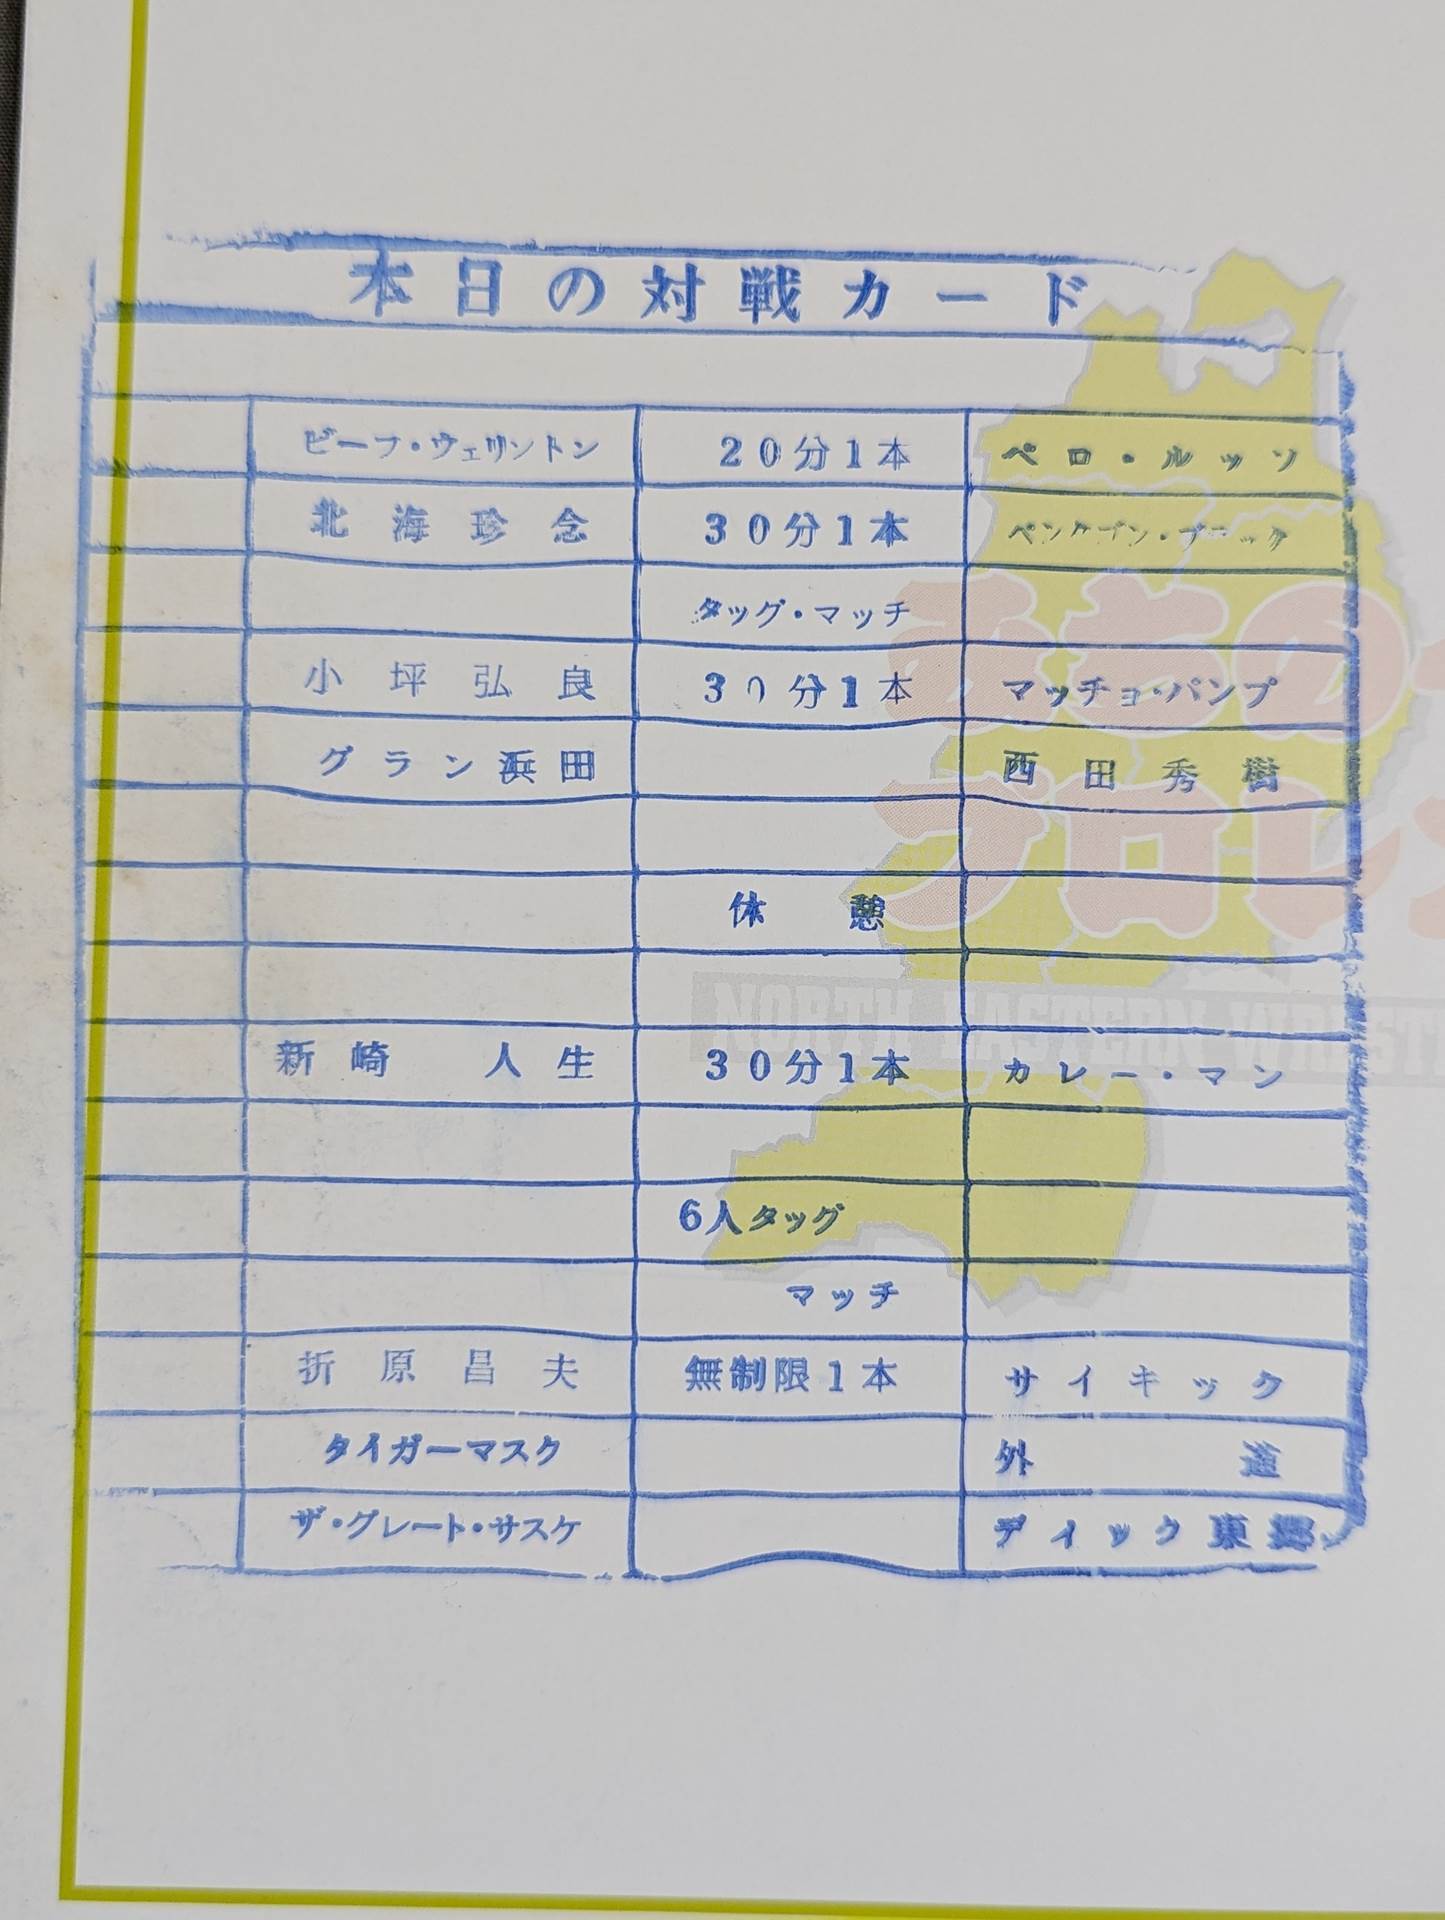 本日の対戦カード
ビーフ・ウェリントン 20分1本 ペロ・ルッソ
北海珍念 30分1本 ペンタゴン・ブラック
タッグ・マッチ
小坪弘良 30分1本 マッチョ・パンプ
グラン浜田 西田秀樹
休憩
新崎 人生 30分1本 カレー・マン
6人タッグ
マッチ
折原昌夫 無制限1本 サイキック
タイガーマスク 外道
ザ・グレート・サスケ ディック東郷
みちの
プロレ
NORTH EASTERN WREST